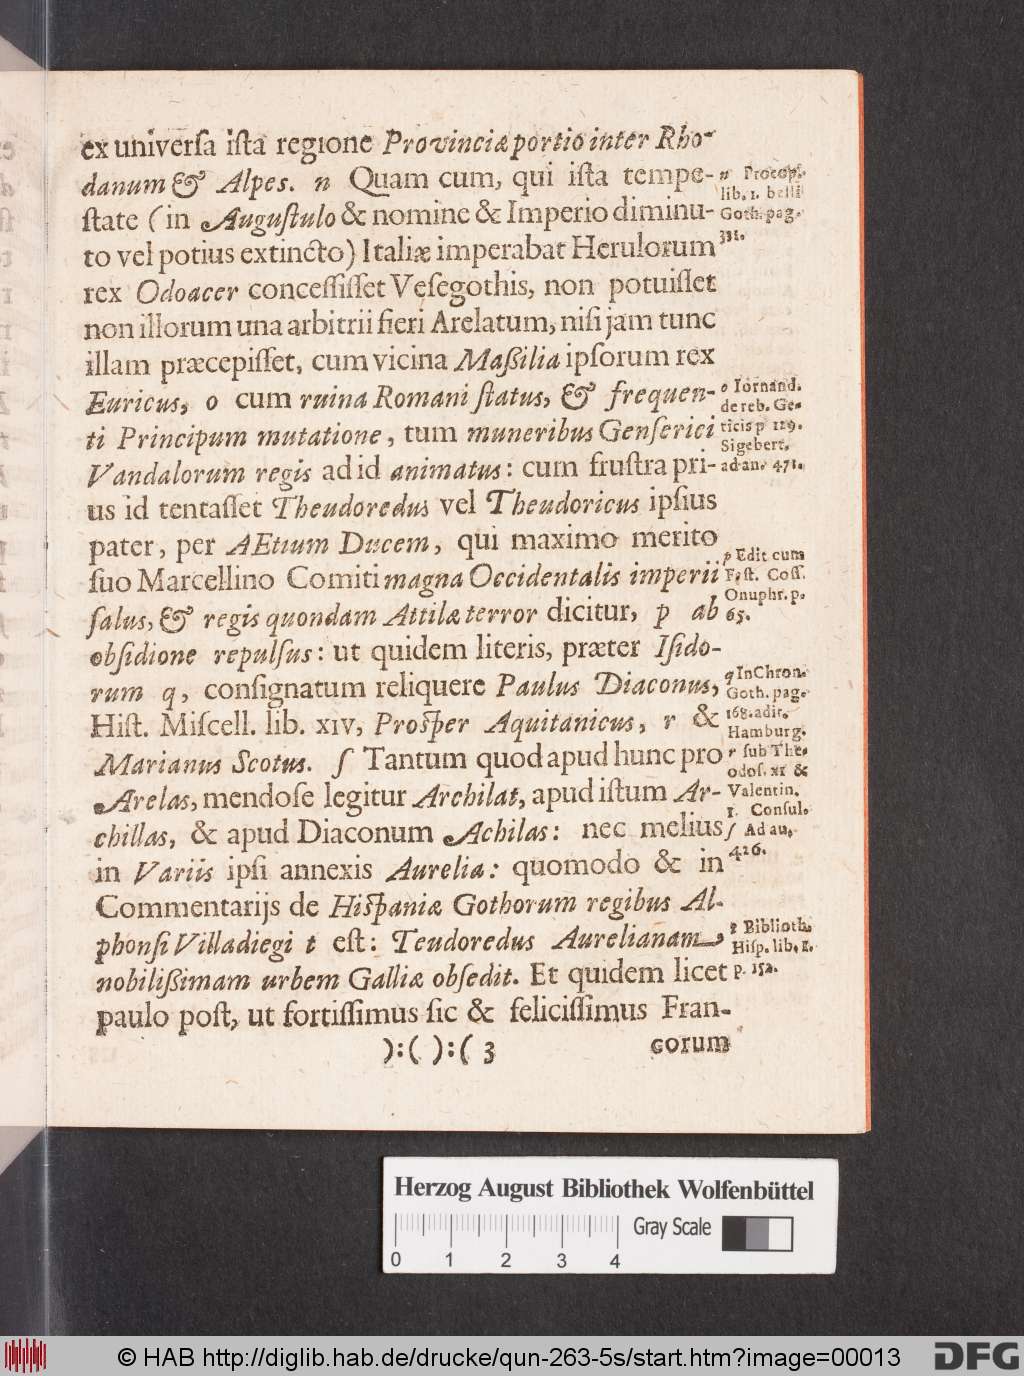 ex univerſa iſta regione Provinciæ portio inter Rho-
danum & Alpes. n Quam cum, qui iſta tempe-
ſtate (in Auguſtulo & nomine & Imperio diminu-
to vel potius extincto) Italiæ imperabat Herulorum
rex Odoacer conceſſiſſet Veſegothis, non potuiſſet
non illorum una arbitrii fieri Arelatum, niſi jam tunc
illam præcepiſſet, cum vicina Maßilia ipſorum rex
Euricus, o cum ruina Romani ſtatus, & frequen-
ti Principum mutatione, tum muneribus Genſerici
Vandalorum regis ad id animatus: cum fruſtra pri-
us id tentaſſet Theudoredus vel Theudoricus ipſius
pater, per AEtium Ducem, qui maximo merito
ſuo Marcellino Comiti magna Occidentalis imperii
ſalus, & regis quondam Attilæ terror dicitur, p ab
obſidione repulſus: ut quidem literis, præter Iſido-
rum q, conſignatum reliquere Paulus Diaconus,
Hiſt. Miſcell. lib. xiv, Proſper Aquitanicus, r &
Marianus Scotus. ſ Tantum quod apud hunc pro
Arelas, mendoſe legitur Archilat, apud iſtum Ar-
chillas, & apud Diaconum Achilas: nec melius
in Variis ipſi annexis Aurelia: quomodo & in
Commentarijs de Hiſpaniæ Gothorum regibus Al-
phonſi Villadiegi t eſt: Teudoredus Aurelianam,
nobilißimam urbem Galliæ obſedit. Et quidem licet
paulo poſt, ut fortiſſimus ſic & feliciſſimus Fran-
):( ):( 3 corum
n Procop.
lib. 1. belli
Goth. pag.
331.
o Iornand.
de reb. Ge-
ticis p 129.
Sigebert.
ad an. 471.
p Edit cum
Faſt. Coſſ.
Onuphr. p.
65.
q In Chron.
Goth. pag.
168. adit.
Hamburg.
r ſub The-
odoſ. xi &
Valentin.
1. Conſul.
ſ Ad an.
426.
t Biblioth.
Hiſp. lib. 2.
p. 152.
Herzog August Bibliothek Wolfenbüttel
Gray Scale
0 1 2 3 4
© HAB http://diglib.hab.de/drucke/qun-263-5s/start.htm?image=00013
DFG